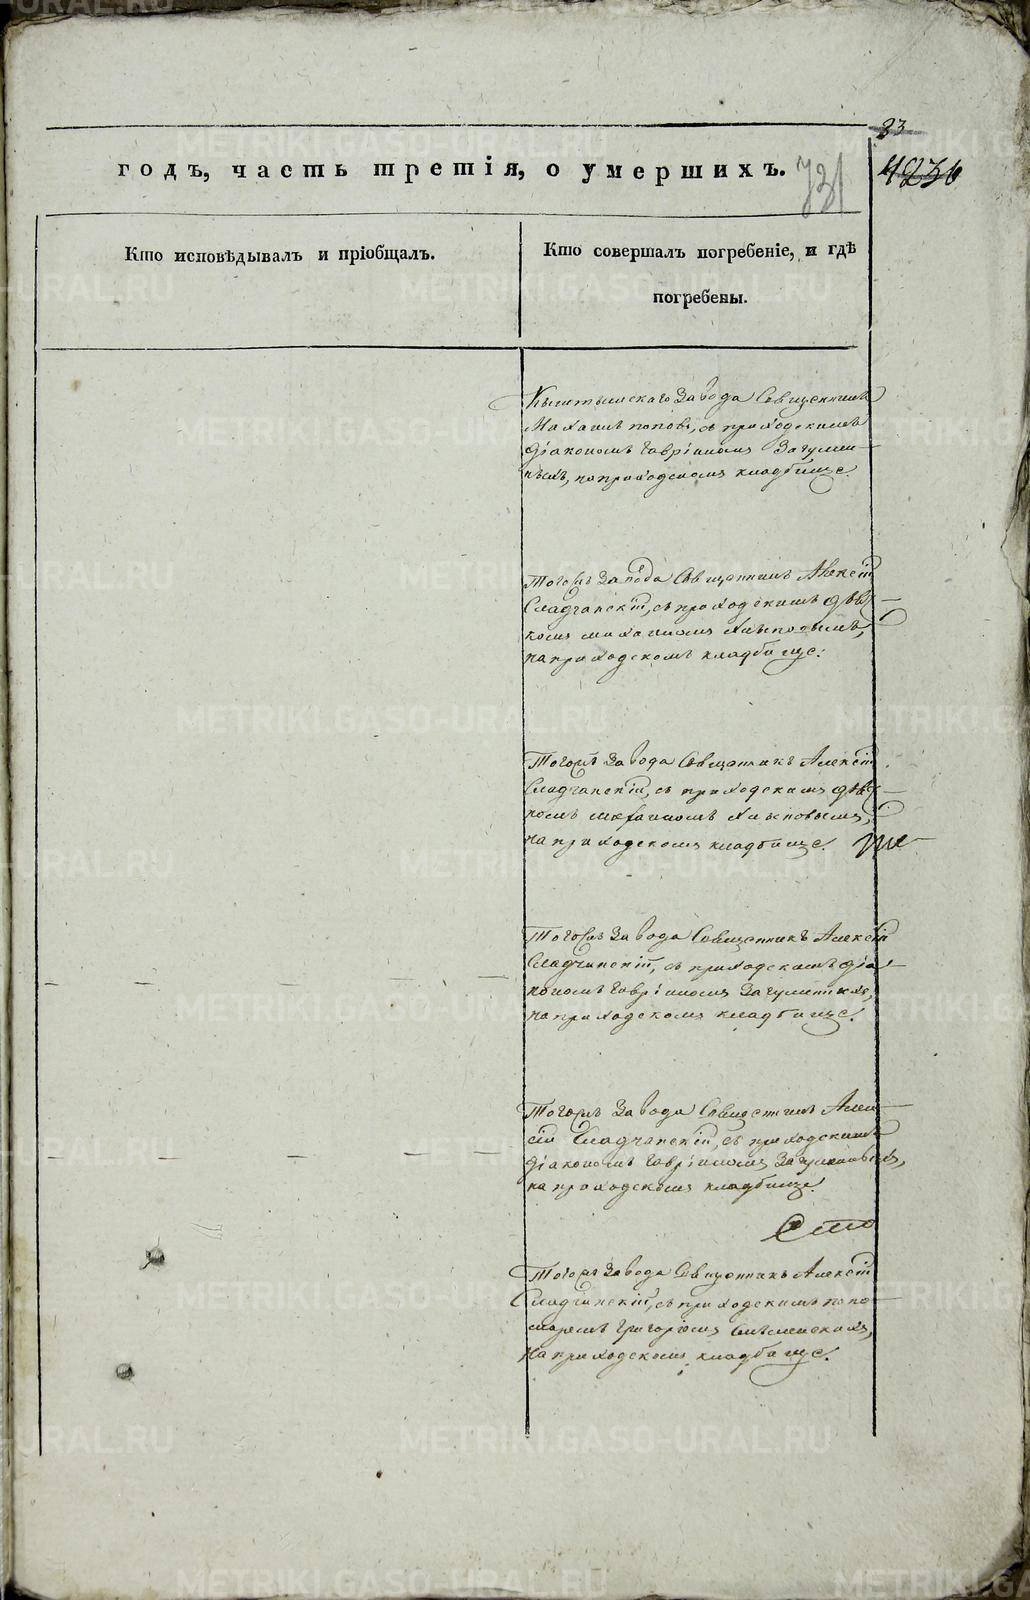 23
годъ, часть третія, о умершихъ.
731
4236
Кто исповѣдывалъ и пріобщалъ.
Кто совершалъ погребеніе, и гдѣ
погребены.
Кыштымскаго Завода Священникъ
попов, съ приходскимъ
діакономъ Гавріиломъ
на приходскомъ кладбище.
Тогожъ Завода Священникъ Алексій
Сладчанскій, съ приходскимъ дья
комъ
на приходскомъ кладбище.
Тогожъ Завода Священникъ Алексій
Сладчанскій, съ приходскимъ дья
комъ
на приходскомъ кладбище.
Тогожъ Завода Священникъ Алексій
Сладчанскій, съ приходскимъ діа
кономъ Гавріиломъ
на приходскомъ кладбище.
Тогожъ Завода Священникъ Алек
сій Сладчанскій, съ приходскимъ
діакономъ Гавріиломъ
на приходскомъ кладбище.
Тогожъ Завода Священникъ Алексій
Сладчанскій, съ приходскимъ поно
маремъ Григоріемъ
на приходскомъ кладбище.
METRIKI.GASO-URAL.RU